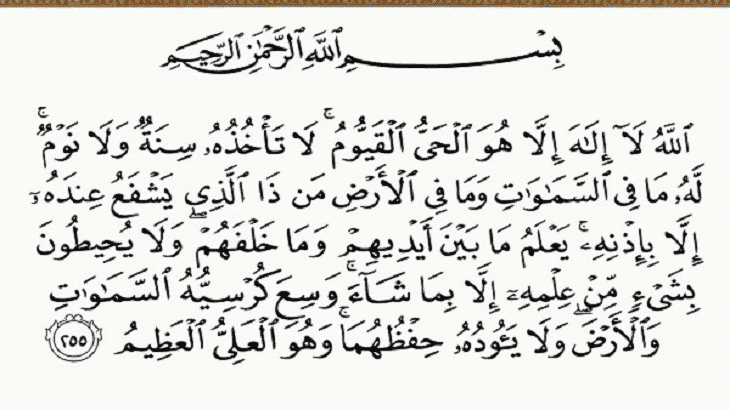 بِسْمِ اللَّهِ الرَّحْمَٰنِ الرَّحِيمِ
اللَّهُ لَآ إِلَٰهَ إِلَّا هُوَ الْحَيُّ الْقَيُّومُ ۚ لَا تَأْخُذُهُۥ سِنَةٌ وَلَا نَوْمٌ ۚ
لَّهُۥ مَا فِي السَّمَٰوَٰتِ وَمَا فِي الْأَرْضِ مَن ذَا الَّذِي يَشْفَعُ عِندَهُۥٓ
إِلَّا بِإِذْنِهِۦ ۚ يَعْلَمُ مَا بَيْنَ أَيْدِيهِمْ وَمَا خَلْفَهُمْ ۖ وَلَا يُحِيطُونَ
بِشَيْءٍ مِّنْ عِلْمِهِۦٓ إِلَّا بِمَا شَآءَ ۚ وَسِعَ كُرْسِيُّهُ السَّمَٰوَٰتِ
وَالْأَرْضَ ۖ وَلَا يَـُٔودُهُۥ حِفْظُهُمَا ۚ وَهُوَ الْعَلِيُّ الْعَظِيمُ ٢٥٥